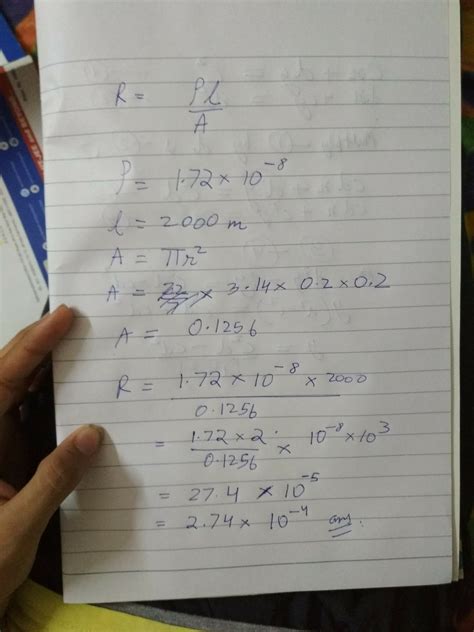 R = ρl/A
ρ = 1.72 × 10⁻⁸
l = 2000 m
A = πr²
A = 22/7 × 3.14 × 0.2 × 0.2
A = 0.1256
R = 1.72 × 10⁻⁸ × 2000 / 0.1256
= 1.72 × 2 / 0.1256 × 10⁻⁸ × 10³
= 27.4 × 10⁻⁵
= 2.74 × 10⁻⁴ ans.